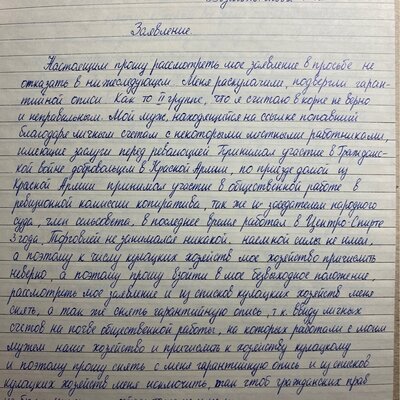 Заявление.
Настоящим прошу рассмотреть мое заявление в просьбе не
отказать в нижеследующем. Меня раскулачили, подвергли гаран-
тийной описи. Как то II группе, что я считаю в корне не верно
и неправильным. Мой муж, находящийся на ссылке попавший
благодаря личным счетам с некоторыми местными работниками,
имеющие заслуги перед революцией. Принимал участие в Граждан-
ской войне добровольцем в Красной Армии, по приезде домой из
Красной Армии принимал участие в общественной работе в
ревизионной комиссии кооператива, так же и заседателем народного
суда, член сельсовета, в последнее время работал в Центро-Спирте
3 года. Торговлей не занимался никакой, наемной силы не имел,
а поэтому к числу кулацких хозяйств мое хозяйство причислить
неверно. А поэтому прошу взойти в мое безвыходное положение,
рассмотреть мое заявление и из списков кулацких хозяйств меня
снять, а так же снять гарантийную опись, т.к. ввиду личных
счетов на почве общественной работы, на которых работали с моим
мужем наше хозяйство и причислили к хозяйству кулацкому
и поэтому прошу снять с меня гарантийную опись и из списков
кулацких хозяйств меня исключить, так чтоб гражданских прав